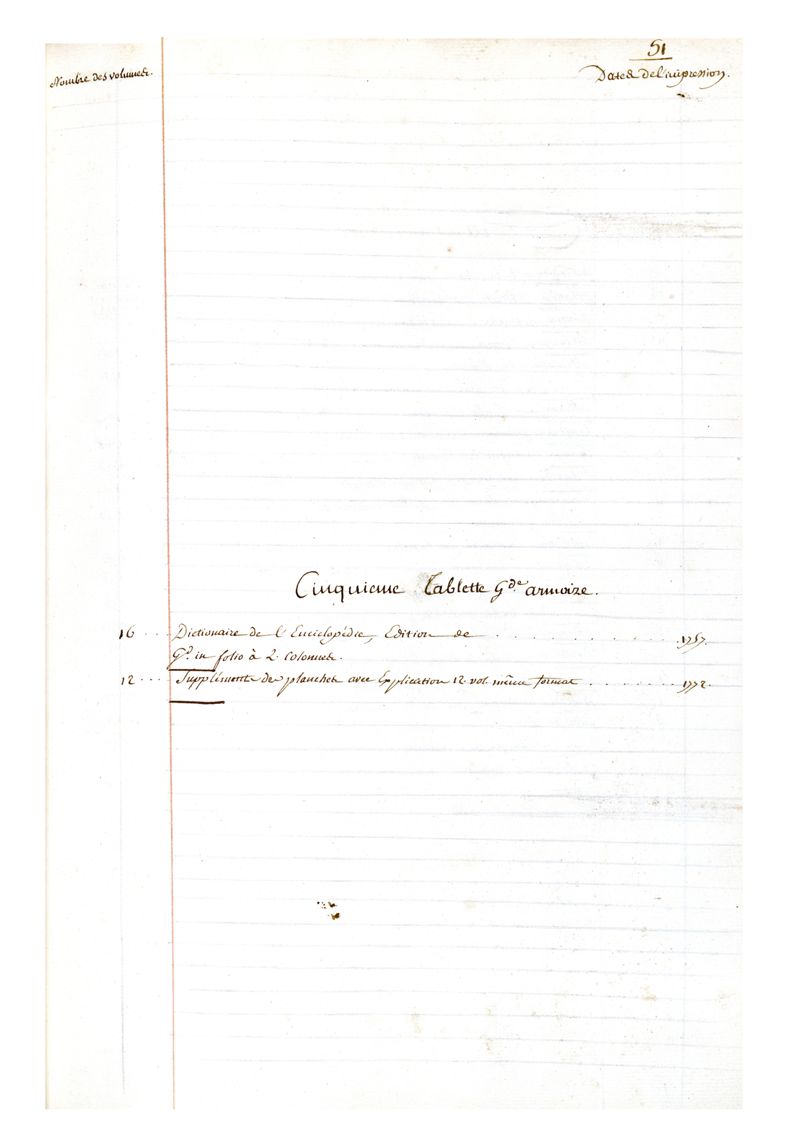 51
Nombre des volumes.
Dates de l'impression.
Cinquieme Tablette Gde. armoire.
16 . . . Dictionaire de l'Enciclopédie, Edition de . . . . . . . . 1757.
Gd. in folio à 2. Colonnes.
12 . . . . Supplément des planches avec Explication 12. vol. même format . . . . . . . 1772.